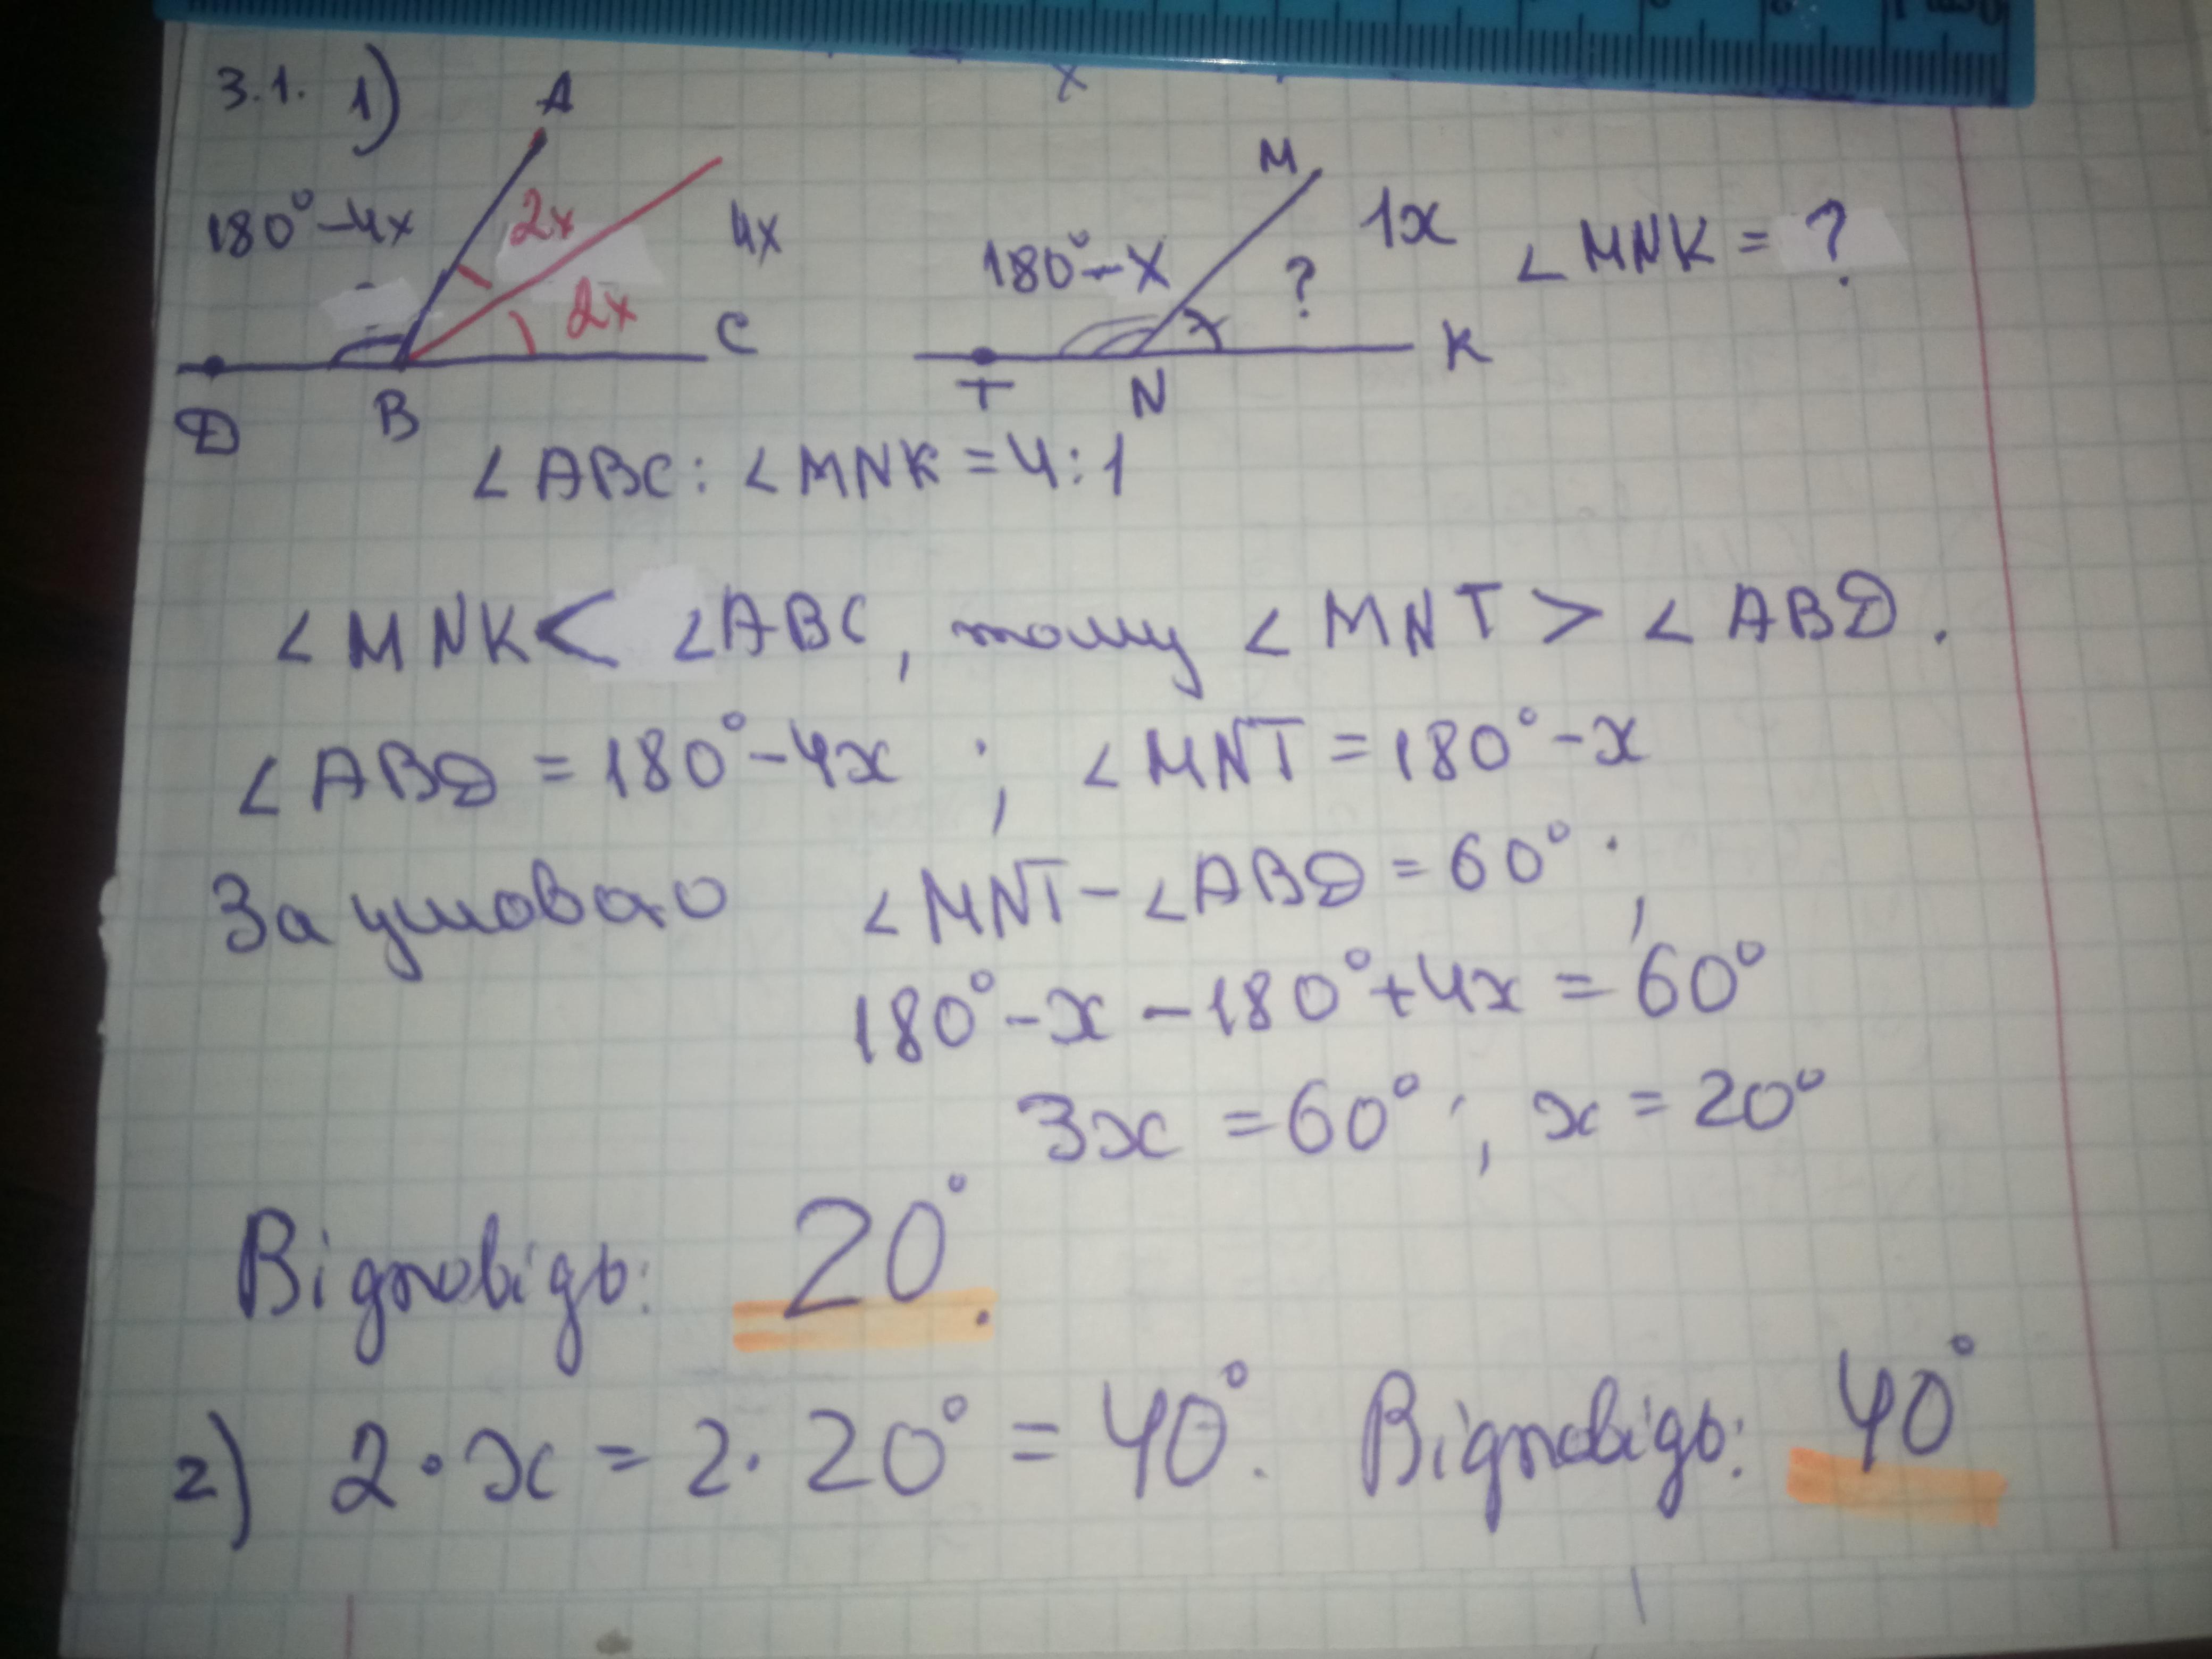 3.1. 1)
A
180°-4x
2x
4x
2x
C
D
B
M
180°-x
1x
?
∠MNK = ?
K
T
N
x
∠ABC : ∠MNK = 4:1
∠MNK < ∠ABC, тому ∠MNT > ∠ABD.
∠ABD = 180°-4x ; ∠MNT = 180°-x
За умовою ∠MNT - ∠ABD = 60° ;
180°-x-180°+4x = 60°
3x = 60° ; x = 20°
Відповідь: 20°.
2) 2·x = 2·20° = 40°. Відповідь: 40°